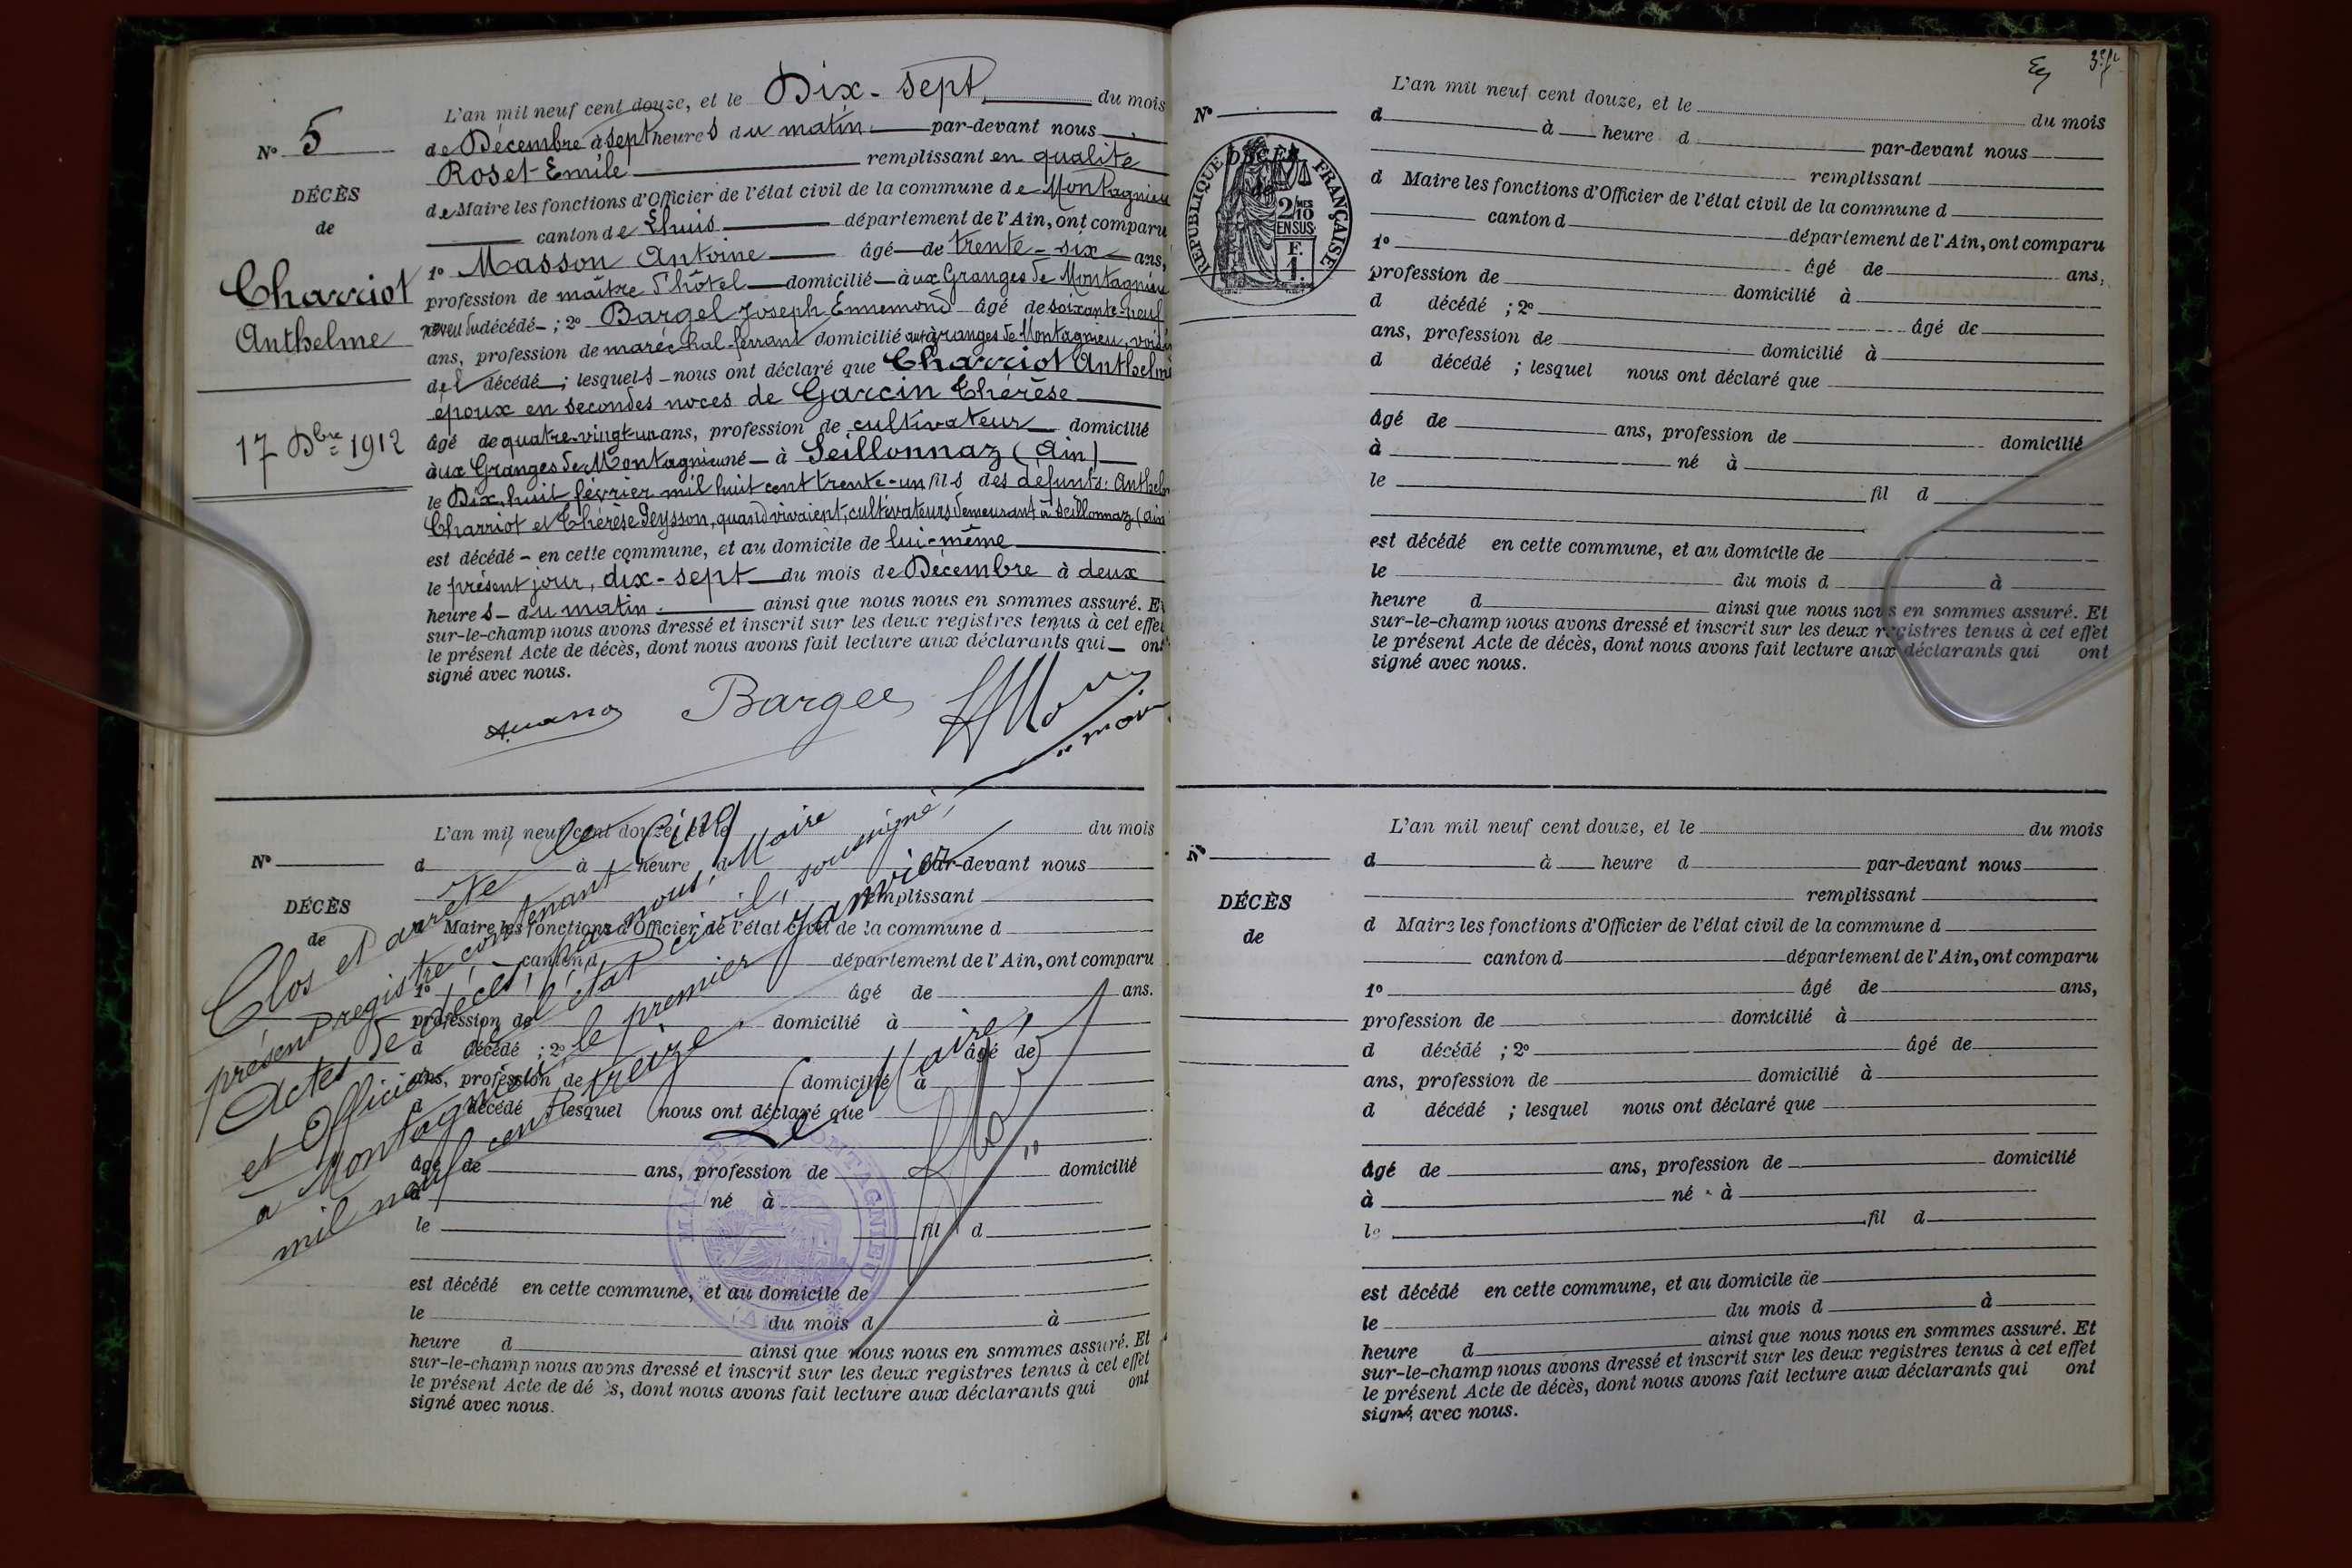 L'an mil neuf cent douze, et le Dix-sept, du mois
de Décembre à sept heures du matin par-devant nous
Roset Emile remplissant en qualité
de Maire les fonctions d'Officier de l'état civil de la commune de Montagnieu
canton de Lhuis département de l'Ain, ont comparu
1º Masson Antoine âgé de trente-six ans,
profession de maître d'hôtel domicilié aux Granges de Montagnieu
neveu du décédé ; 2º Bargel Joseph Ennemond âgé de soixante-neuf
ans, profession de maréchal-ferrant domicilié aux granges de Montagnieu, voisin
del décédé ; lesquels nous ont déclaré que Charriot Anthelme
époux en secondes noces de Garcin Thérèse
âgé de quatre-vingt-un ans, profession de cultivateur domicilié
aux Granges de Montagnieu né à Seillonnaz (Ain)
le Dix-huit février mil huit cent trente-un fils des défunts: Anthelme
Charriot et Thérèse Peysson, quand vivaient, cultivateurs demeurant à Seillonnaz (Ain
est décédé en cette commune, et au domicile de lui-même
le présent jour, dix-sept du mois de Décembre à deux
heures du matin. ainsi que nous nous en sommes assuré. Et
sur-le-champ nous avons dressé et inscrit sur les deux registres tenus à cet effet
le présent Acte de décès, dont nous avons fait lecture aux déclarants qui ont
signé avec nous.
Nº 5
DÉCÈS
de
Charriot
Anthelme
17 Dbre 1912
Bargel
L'an mil neuf cent douze, et le du mois
d à heure d par-devant nous
remplissant
d Maire les fonctions d'Officier de l'état civil de la commune d
canton d département de l'Ain, ont comparu
1º âgé de ans.
profession de domicilié à
d décédé ; 2º âgé de
ans, profession de domicilié à
d décédé ; lesquel nous ont déclaré que
âgé de ans, profession de domicilié
à né à
le fil d
est décédé en cette commune, et au domicile de
le du mois d à
heure d ainsi que nous nous en sommes assuré. Et
sur-le-champ nous avons dressé et inscrit sur les deux registres tenus à cet effet
le présent Acte de décès, dont nous avons fait lecture aux déclarants qui ont
signé avec nous.
Nº
DÉCÈS
de
Clos et arrêté le
présent registre contenant Cinq
Actes de décès, par nous, Maire
et Officier de l'état civil, soussigné,
à Montagnieu le premier janvier
mil neuf cent treize.
Le Maire,
MAIRIE DE MONTAGNIEU
(AIN)
L'an mil neuf cent douze, et le du mois
d à heure d par-devant nous
remplissant
d Maire les fonctions d'Officier de l'état civil de la commune d
canton d département de l'Ain, ont comparu
1º âgé de ans,
profession de domicilié à
d décédé ; 2º âgé de
ans, profession de domicilié à
d décédé ; lesquel nous ont déclaré que
âgé de ans, profession de domicilié
à né à
le fil d
est décédé en cette commune, et au domicile de
le du mois d à
heure d ainsi que nous nous en sommes assuré. Et
sur-le-champ nous avons dressé et inscrit sur les deux registres tenus à cet effet
le présent Acte de décès, dont nous avons fait lecture aux déclarants qui ont
signé avec nous.
Nº
DÉCÈS
de
RÉPUBLIQUE FRANÇAISE
2/10 MES
EN SUS
F.
1.
L'an mil neuf cent douze, et le du mois
d à heure d par-devant nous
remplissant
d Maire les fonctions d'Officier de l'état civil de la commune d
canton d département de l'Ain, ont comparu
1º âgé de ans,
profession de domicilié à
d décédé ; 2º âgé de
ans, profession de domicilié à
d décédé ; lesquel nous ont déclaré que
âgé de ans, profession de domicilié
à né à
le fil d
est décédé en cette commune, et au domicile de
le du mois d à
heure d ainsi que nous nous en sommes assuré. Et
sur-le-champ nous avons dressé et inscrit sur les deux registres tenus à cet effet
le présent Acte de décès, dont nous avons fait lecture aux déclarants qui ont
signé avec nous.
Nº
DÉCÈS
de